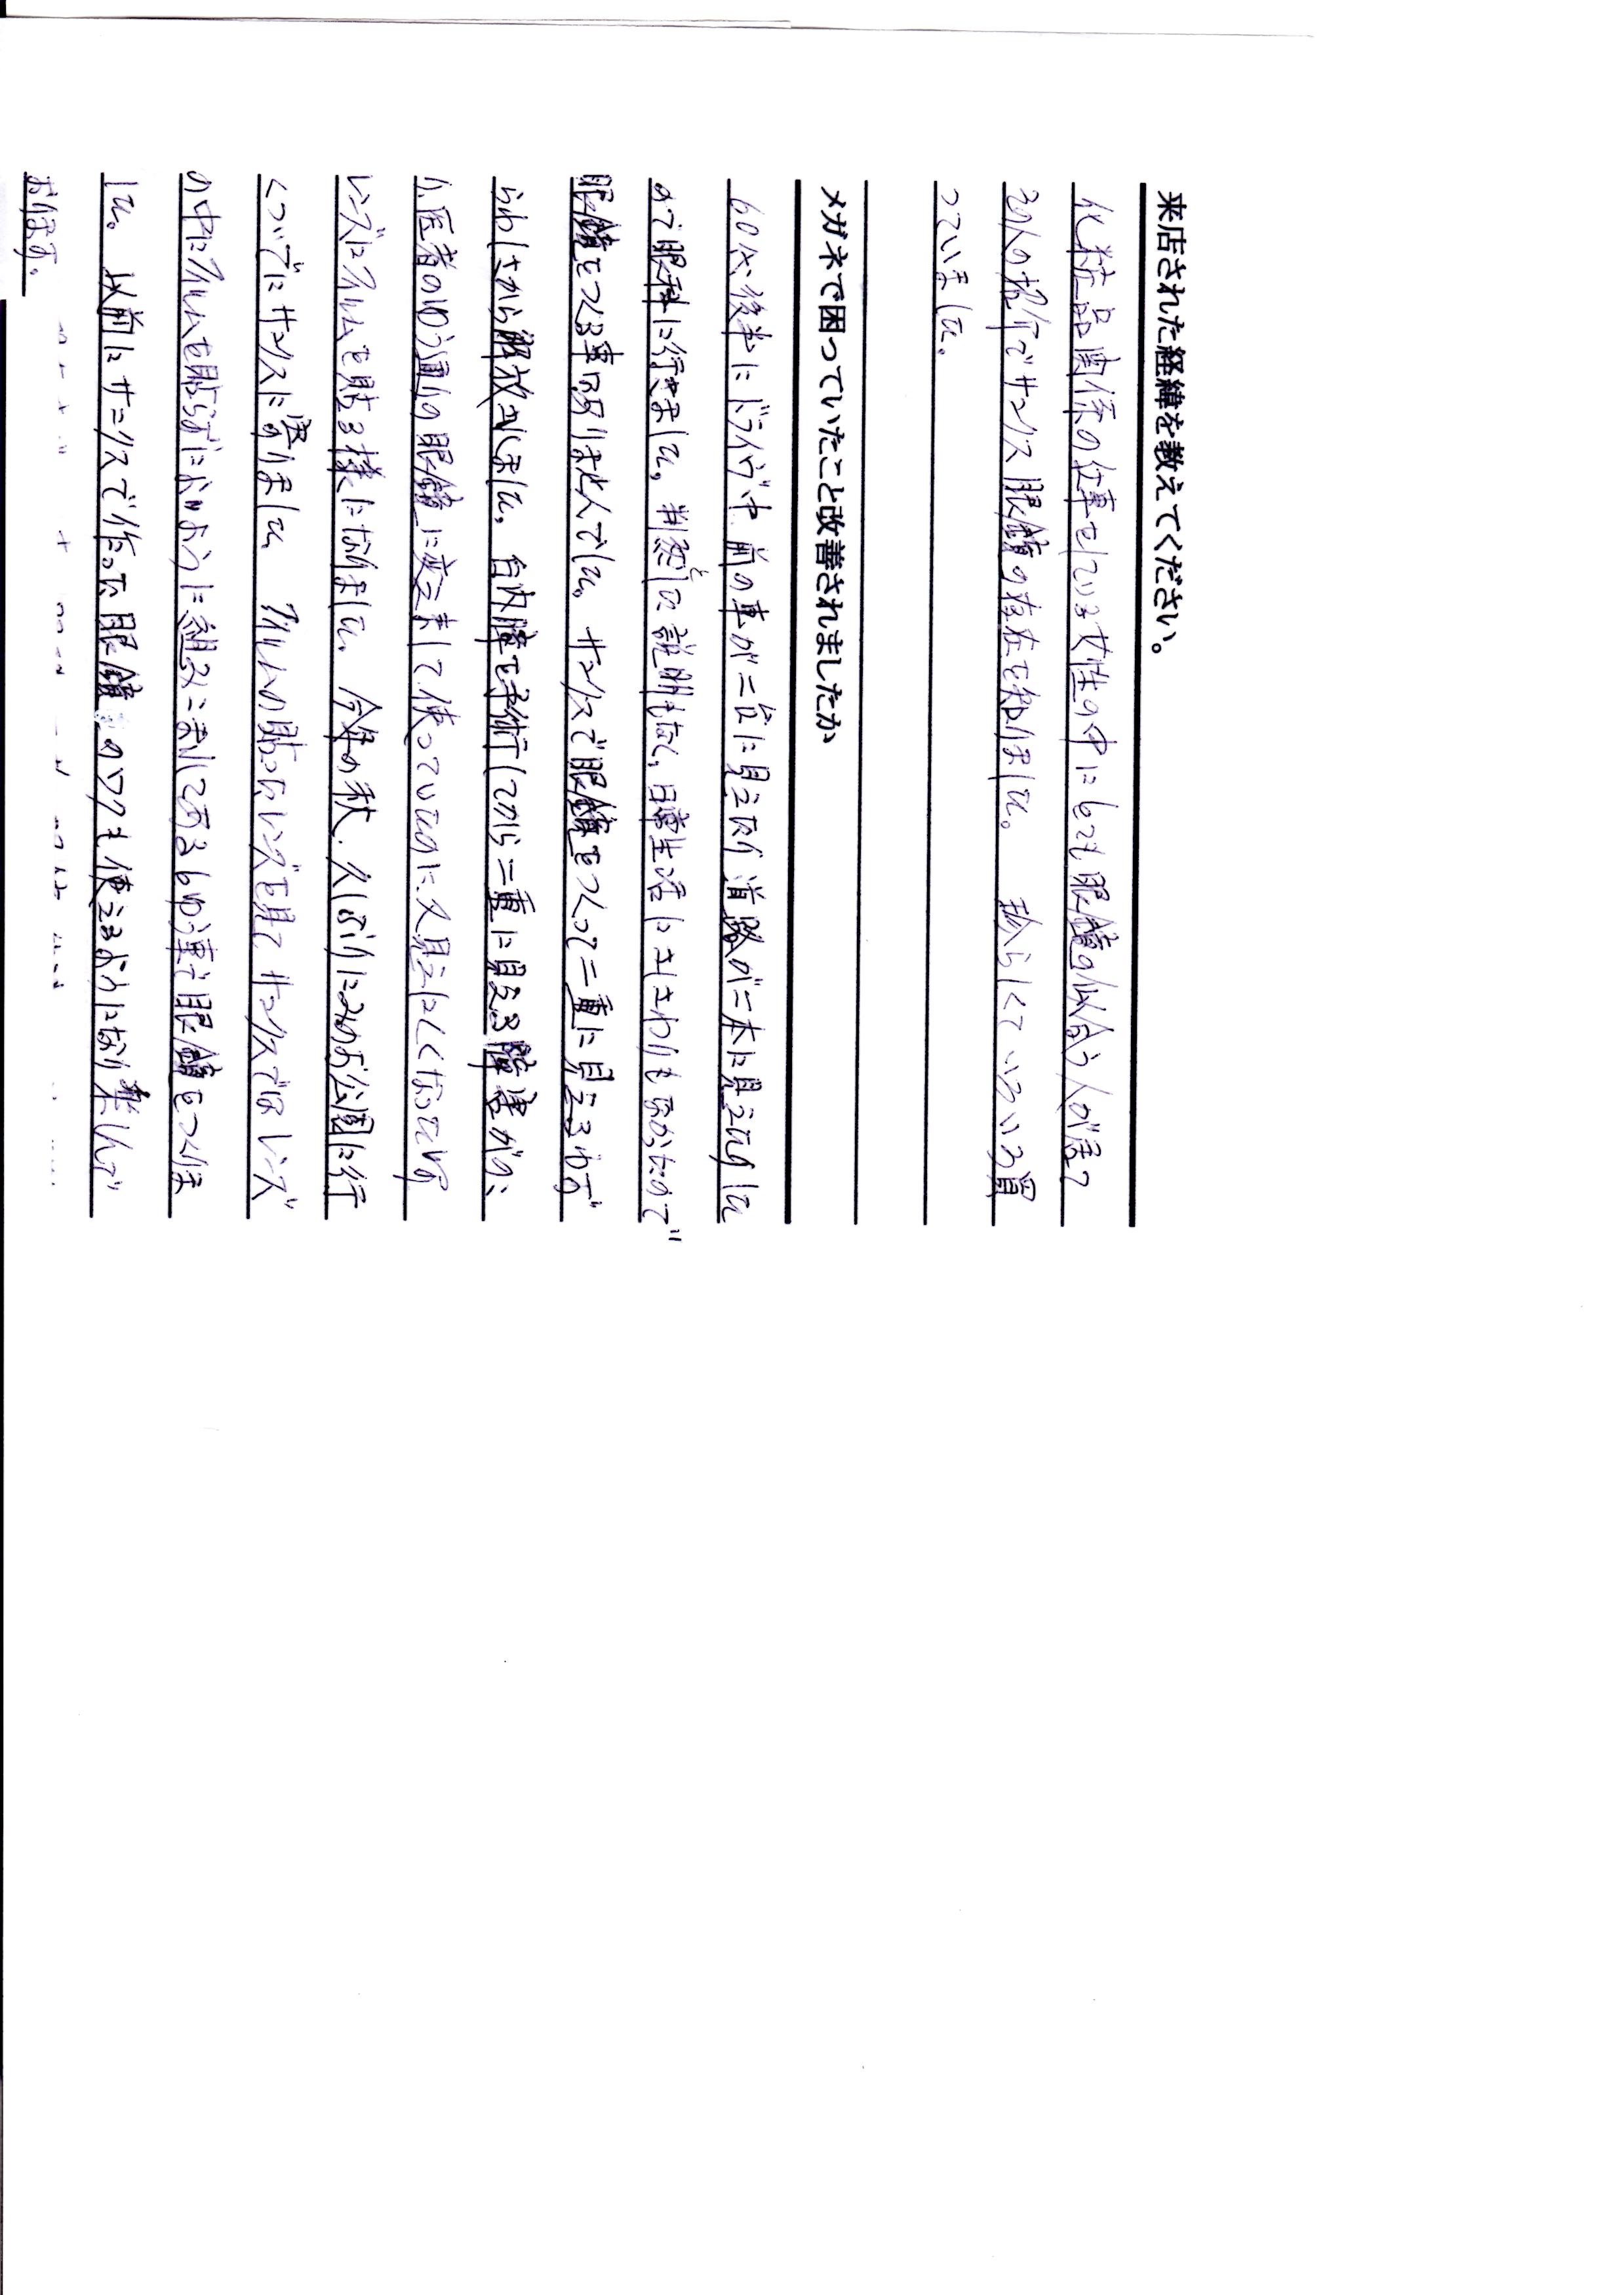 来店された経緯を教えてください。
化粧品関係の仕事をしている女性の中にとても眼鏡の似合う人が居て
その人の紹介でサンクス眼鏡の存在を知りました。 珍らしくていろいろ買
っていました。
メガネで困っていたこと改善されましたか
60代後半にドライブ中 前の車が二台に見えたり道路が二本に見えたりした
ので眼科に行きました。判然とした説明もなく、日常生活にさしさわりもなかったので
眼鏡をつくる事はありませんでした。サンクスで眼鏡をつくって二重に見えるわず
らわしさから解放されました。白内障を手術してから二重に見える障害がのこ
り、医者のゆう通り眼鏡に変えまして使っていたのに又見えにくくなったので
レンズにフィルムを貼る様になりました。今年の秋、久しぶりにみのお公園に行
くついでにサンクスに寄りました フィルムの貼ったレンズを見て サンクスではレンズ
の中にフィルムを貼らずにぶのように組みこまれてあるとゆう事で眼鏡をつくりま
した。 以前にサンクスで作った眼鏡のワクも使えるようになり楽しんで
おります。